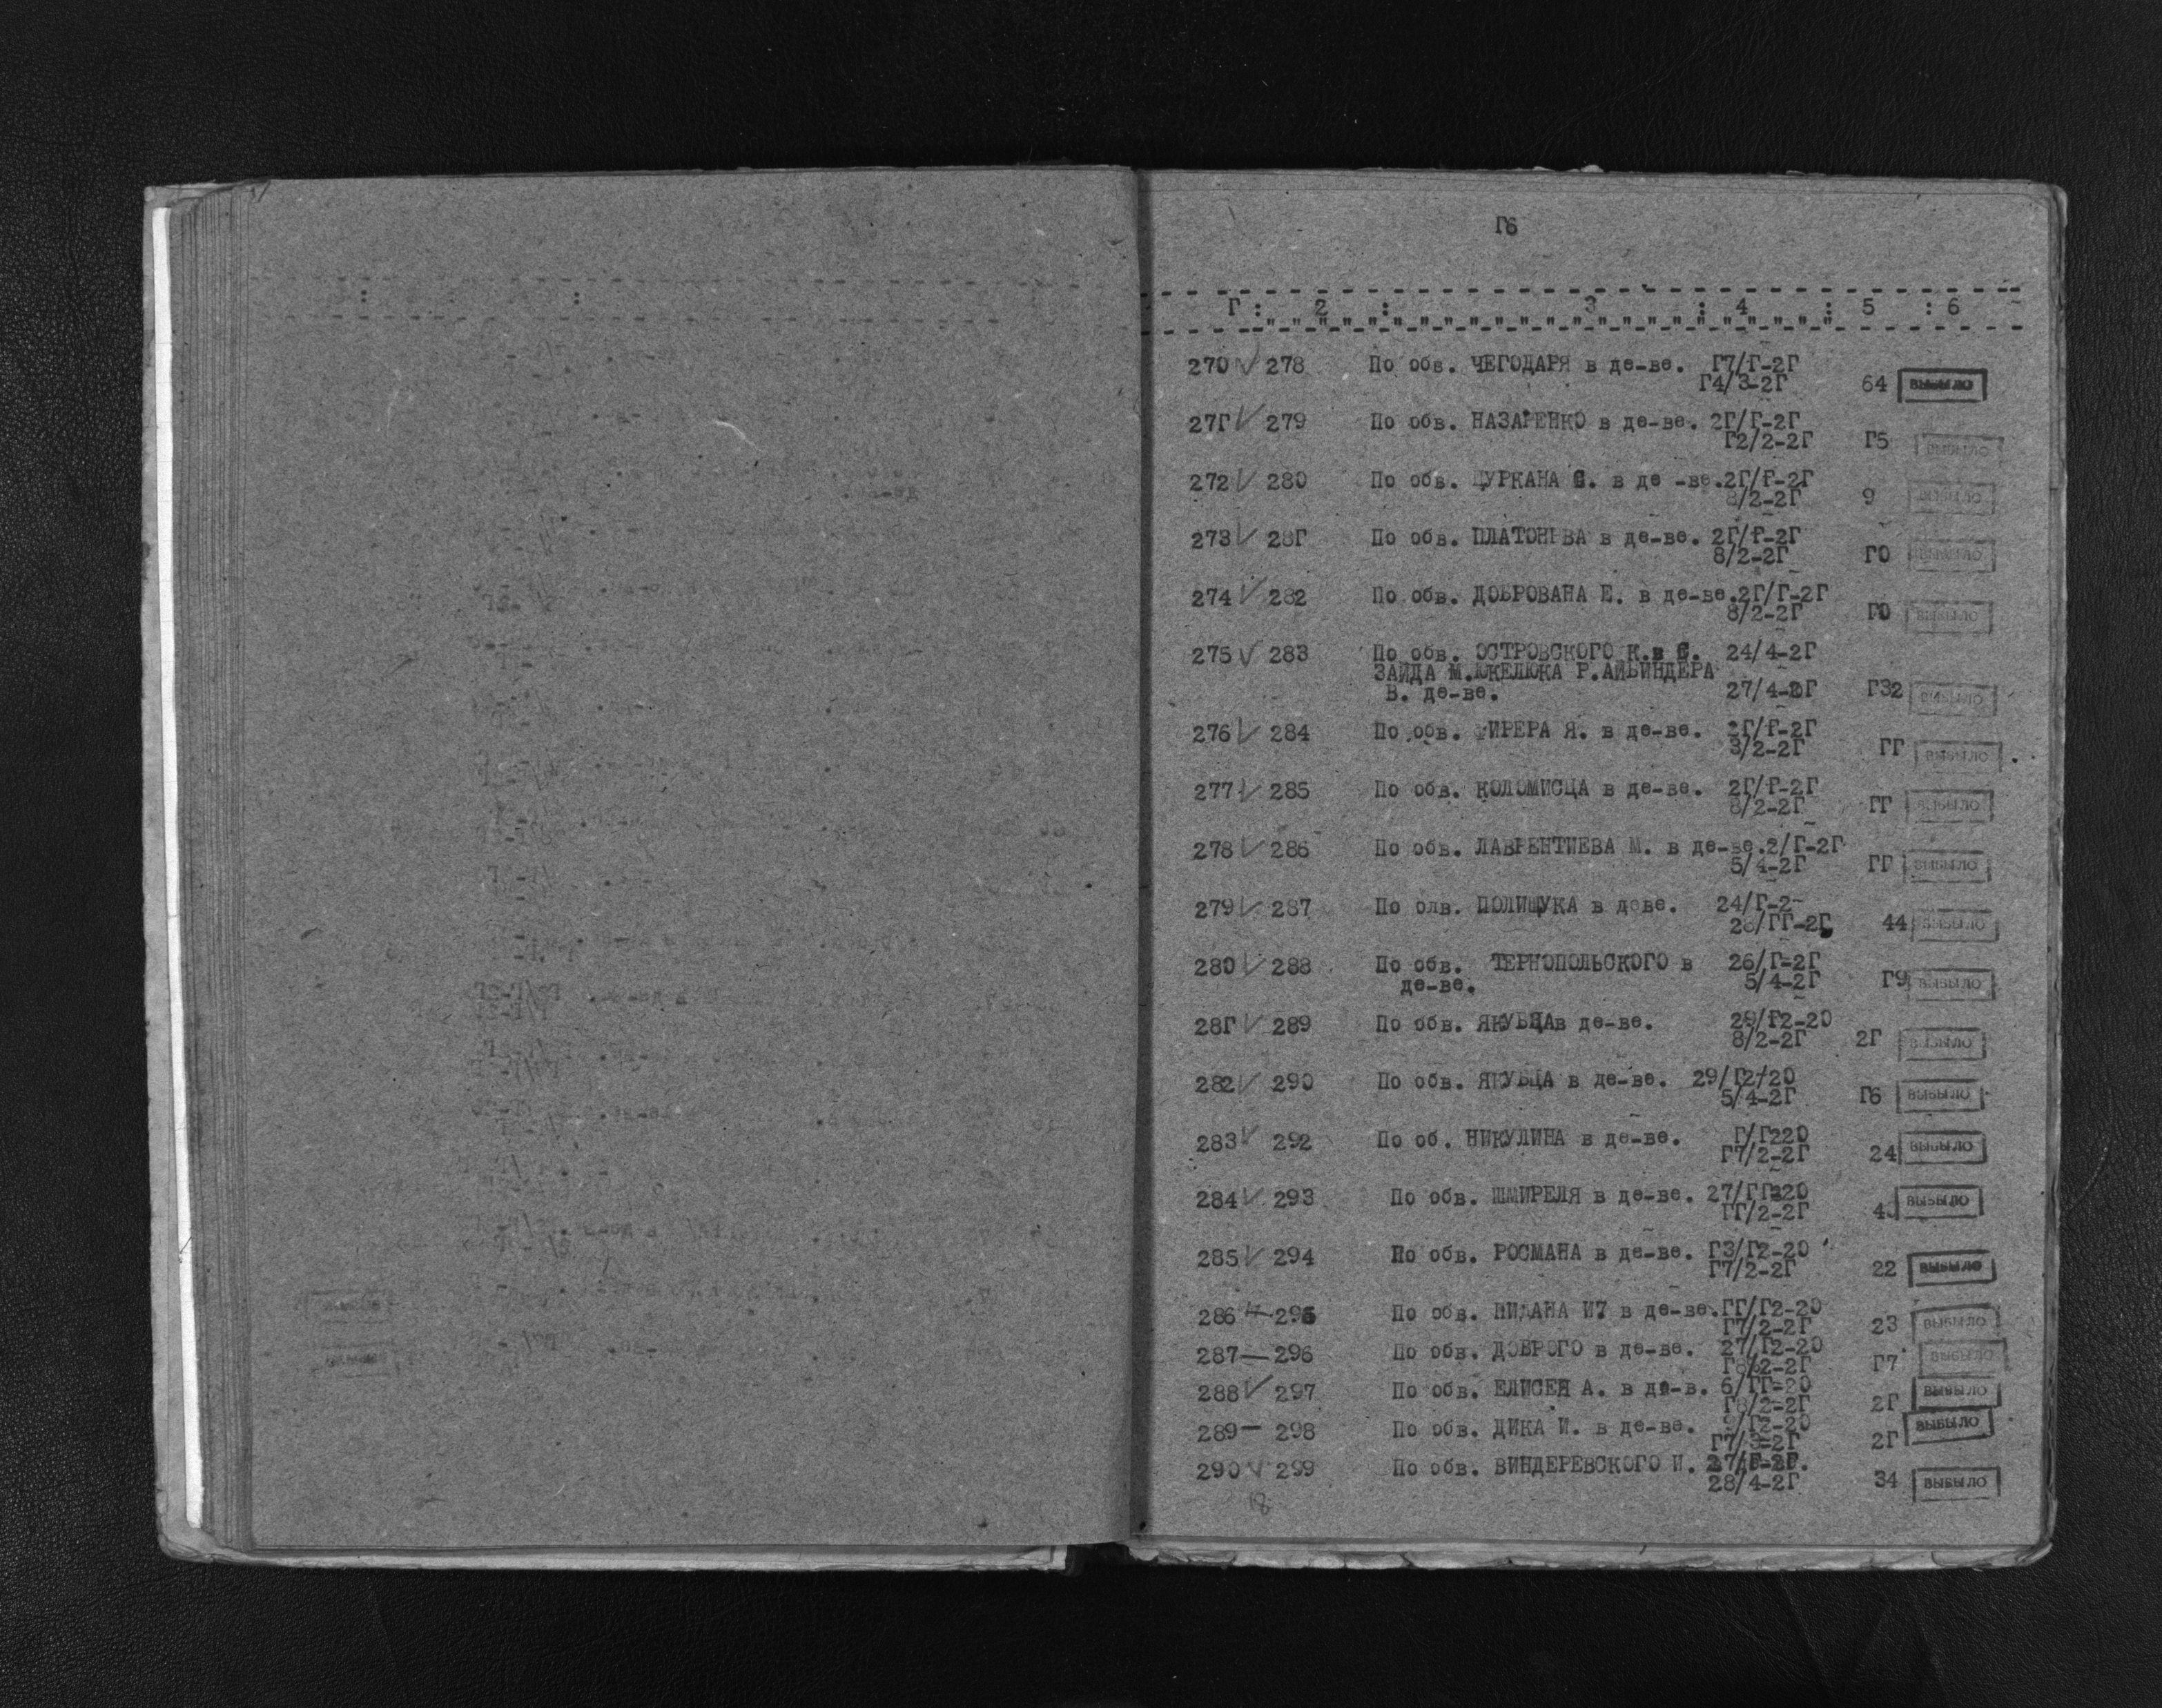 Г6
Г : 2 : 3 : 4 : 5 : 6
270 278 По обв. ЧЕГОДАРЯ в де-ве. Г7/Г-2Г
Г4/3-2Г 64 ВЫБЫЛО
27Г 279 По обв. НАЗАРЕНКО в де-ве. 2Г/Г-2Г
Г2/2-2Г Г5 ВЫБЫЛО
272 280 По обв. ЦУРКАНА С. в де -ве.2Г/Г-2Г
8/2-2Г 9 ВЫБЫЛО
273 28Г По обв. в де-ве. 2Г/Г-2Г
8/2-2Г Г0 ВЫБЫЛО
274 282 По обв. ДОБРОВАНА Е. в де-ве.2Г/Г-2Г
8/2-2Г Г0 ВЫБЫЛО
275 283 По обв. ОСТРОВСКОГО К.в С. 24/4-2Г
ЗАЙДА М. Р.АЙБИНДЕРА
В. де-ве. 27/4-2Г Г32 ВЫБЫЛО
276 284 По обв. Я. в де-ве. 2Г/Г-2Г
3/2-2Г ГГ ВЫБЫЛО
277 285 По обв. КОЛОМИСЦА в де-ве. 2Г/Г-2Г
8/2-2Г ГГ ВЫБЫЛО
278 286 По обв. ЛАВРЕНТИЕВА М. в де-ве.2/Г-2Г
5/4-2Г ГГ ВЫБЫЛО
279 287 По олв. ПОЛИЩУКА в деве. 24/Г-2-
44 ВЫБЫЛО
280 288 По обв. ТЕРНОПОЛЬСКОГО в 26/Г-2Г
де-ве. 5/4-2Г Г9 ВЫБЫЛО
28Г 289 По обв. ЯКУБЦАв де-ве. 29/Г2-20
8/2-2Г 2Г ВЫБЫЛО
282 290 По обв. ЯКУБЦА в де-ве. 29/Г2/20
5/4-2Г Г6 ВЫБЫЛО
283 292 По об. НИКУЛИНА в де-ве. Г/Г220
Г7/2-2Г 24 ВЫБЫЛО
284 293 По обв. ШМИРЕЛЯ в де-ве. 27/ГГ220
ГГ/2-2Г ВЫБЫЛО
285 294 По обв. РОСМАНА в де-ве. Г3/Г2-20
Г7/2-2Г 22 ВЫБЫЛО
286 295 По обв. И7 в де-ве.ГГ/Г2-20
Г7/2-2Г 23 ВЫБЫЛО
287 — 296 По обв. ДОБРОГО в де-ве. 27/Г2-20
Г8/2-2Г Г7 ВЫБЫЛО
288 297 По обв. ЕЛИСЕЯ А. в де-в. 6/ГГ-20
2Г ВЫБЫЛО
289 — 298 По обв. ДИКА И. в де-ве. 9/Г2-20
Г7/3-2Г 2Г ВЫБЫЛО
290 299 По обв. ВИНДЕРЕВСКОГО И.
28/4-2Г 34 ВЫБЫЛО
18